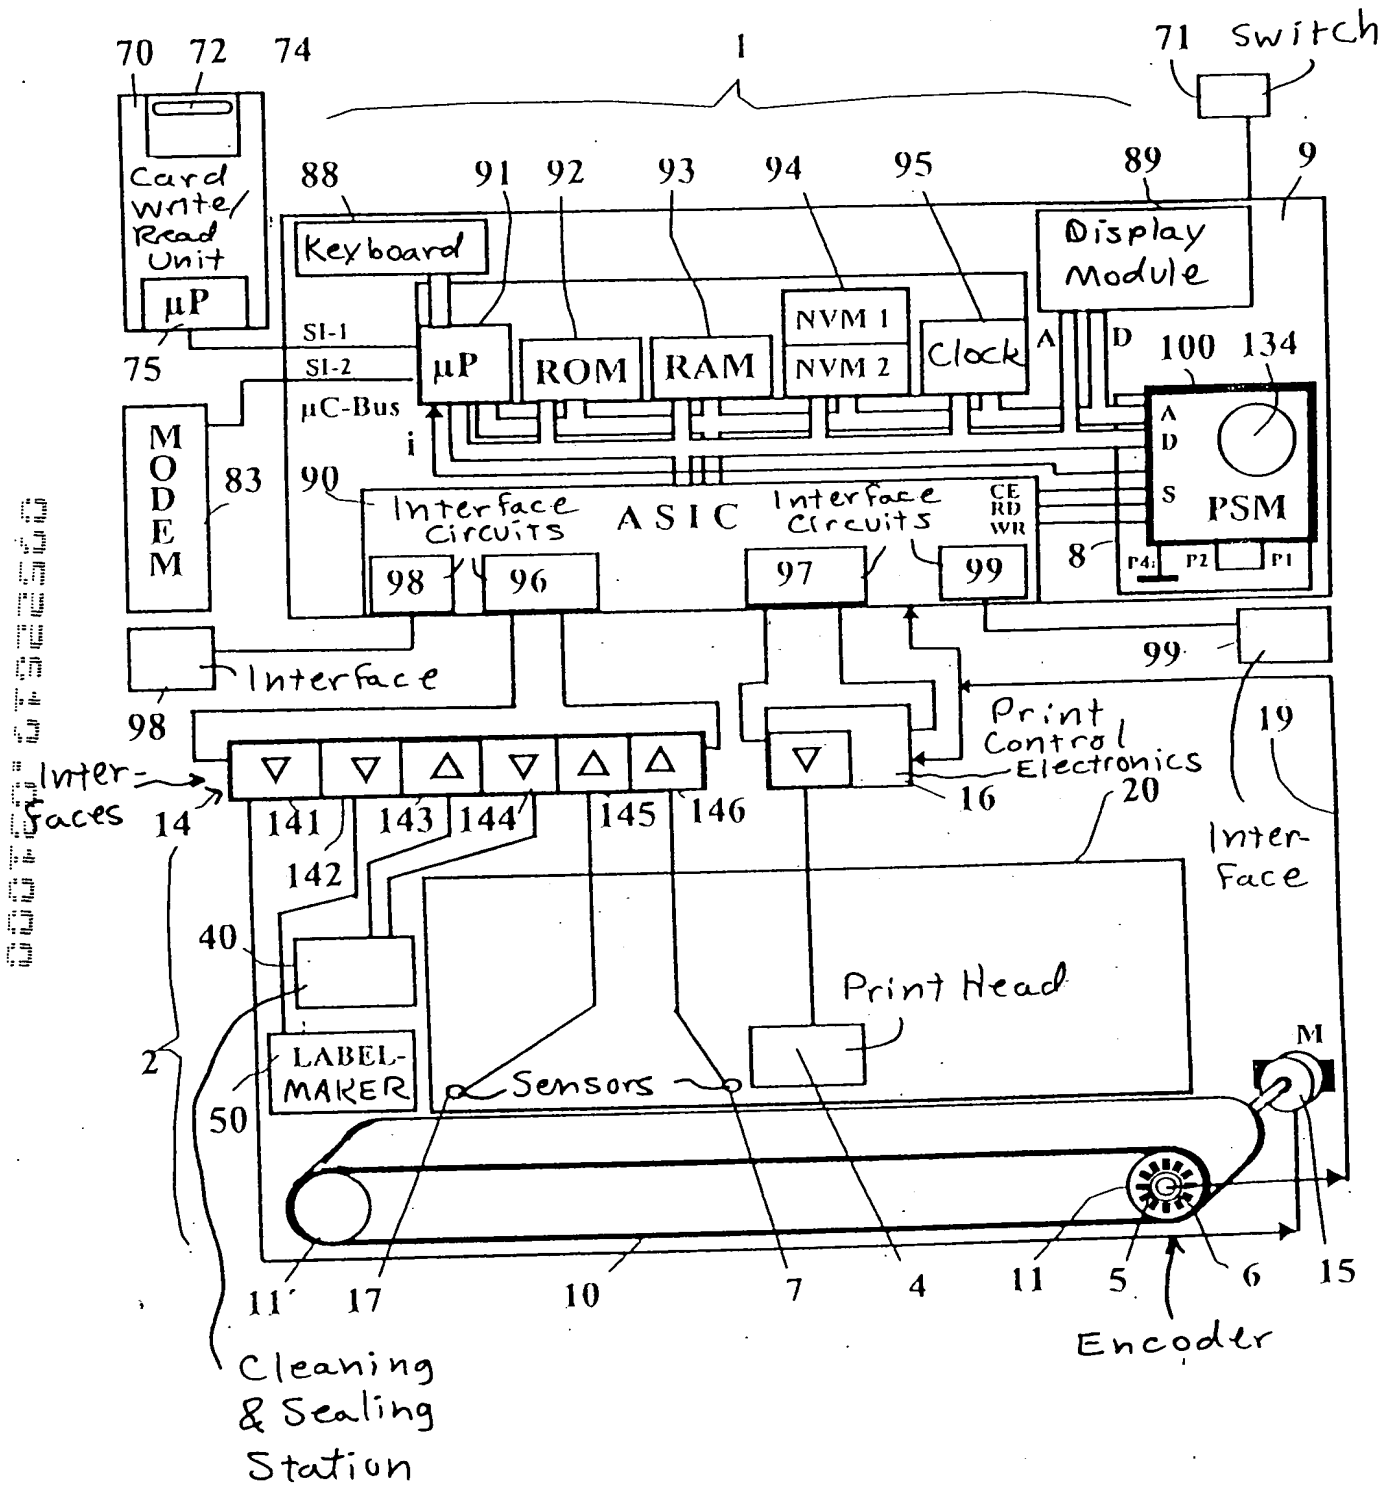 70 72 74
1
71 Switch
Card
Write/
Read
Unit
µP
75
88 91 92 93 94 95 89 9
Keyboard
Display
Module
SI-1
SI-2
µC-Bus
i
µP
ROM
RAM
NVM 1
NVM 2
Clock
A D
100 134
A
D
S
PSM
MODEM
83
90
Interface
Circuits
ASIC
Interface
Circuits
CE
RD
WR
8
P4 P2 P1
98 96 97 99
98
Interface
99
Inter-
faces
14
141 142 143 144 145 146
Print
Control
Electronics
16
20
19
Inter-
face
2
40
50
LABEL-
MAKER
Sensors
Print Head
M
11' 17 10 7 4 11 5 6 15
Encoder
Cleaning
& Sealing
Station